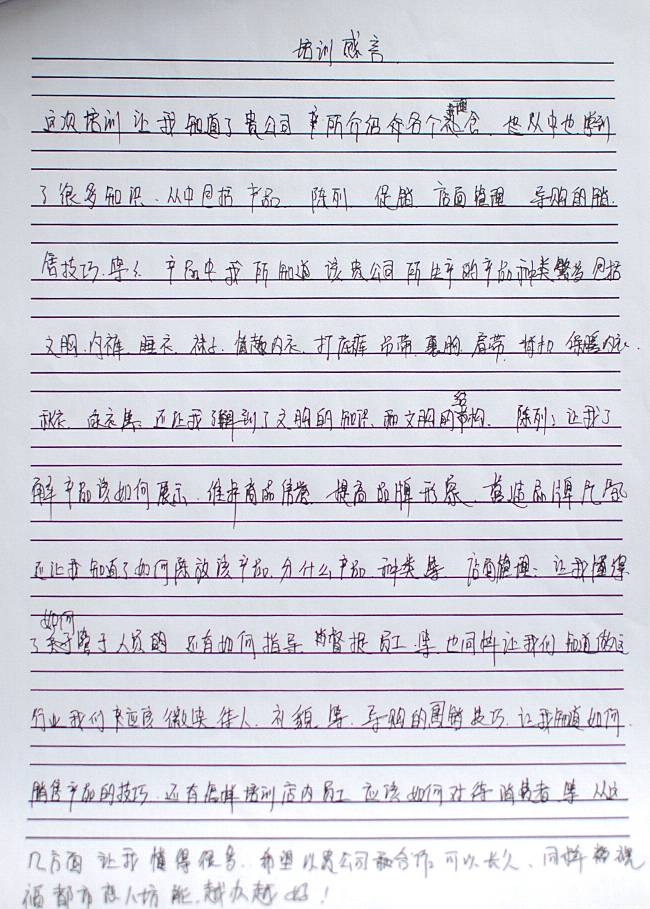 培训感言
这次培训让我知道了贵公司所介绍各个理念、也从中也学到
了很多知识、从中包括产品、陈列、促销、店面管理、导购的销
售技巧、等、产品中我所知道该贵公司所生产的产品种类繁多包括
文胸、内裤、睡衣、袜子、情趣内衣、打底裤、吊带、裹胸、肩带、保暖内衣、
秋衣、等；还让我了解到了文胸的知识、和文胸的结构、陈列：让我了
解产品该如何展示、商品信誉、提高品牌形象、营造品牌气氛
还让我知道了如何陈放该产品、分什么产品、种类等、店面管理：让我懂得
了如何管于人员的、还有如何指导、督捉员工、等、也同样让我们知道做这
行业我们应该微笑待人、礼貌等、导购的销技巧、让我知道如何
销售产品的技巧、还有怎样培训店内员工应该如何对待消费者、等从这
几方面让我懂得很多、希望以贵公司合作可以长久、同样
都市恋人坊能越办越好！